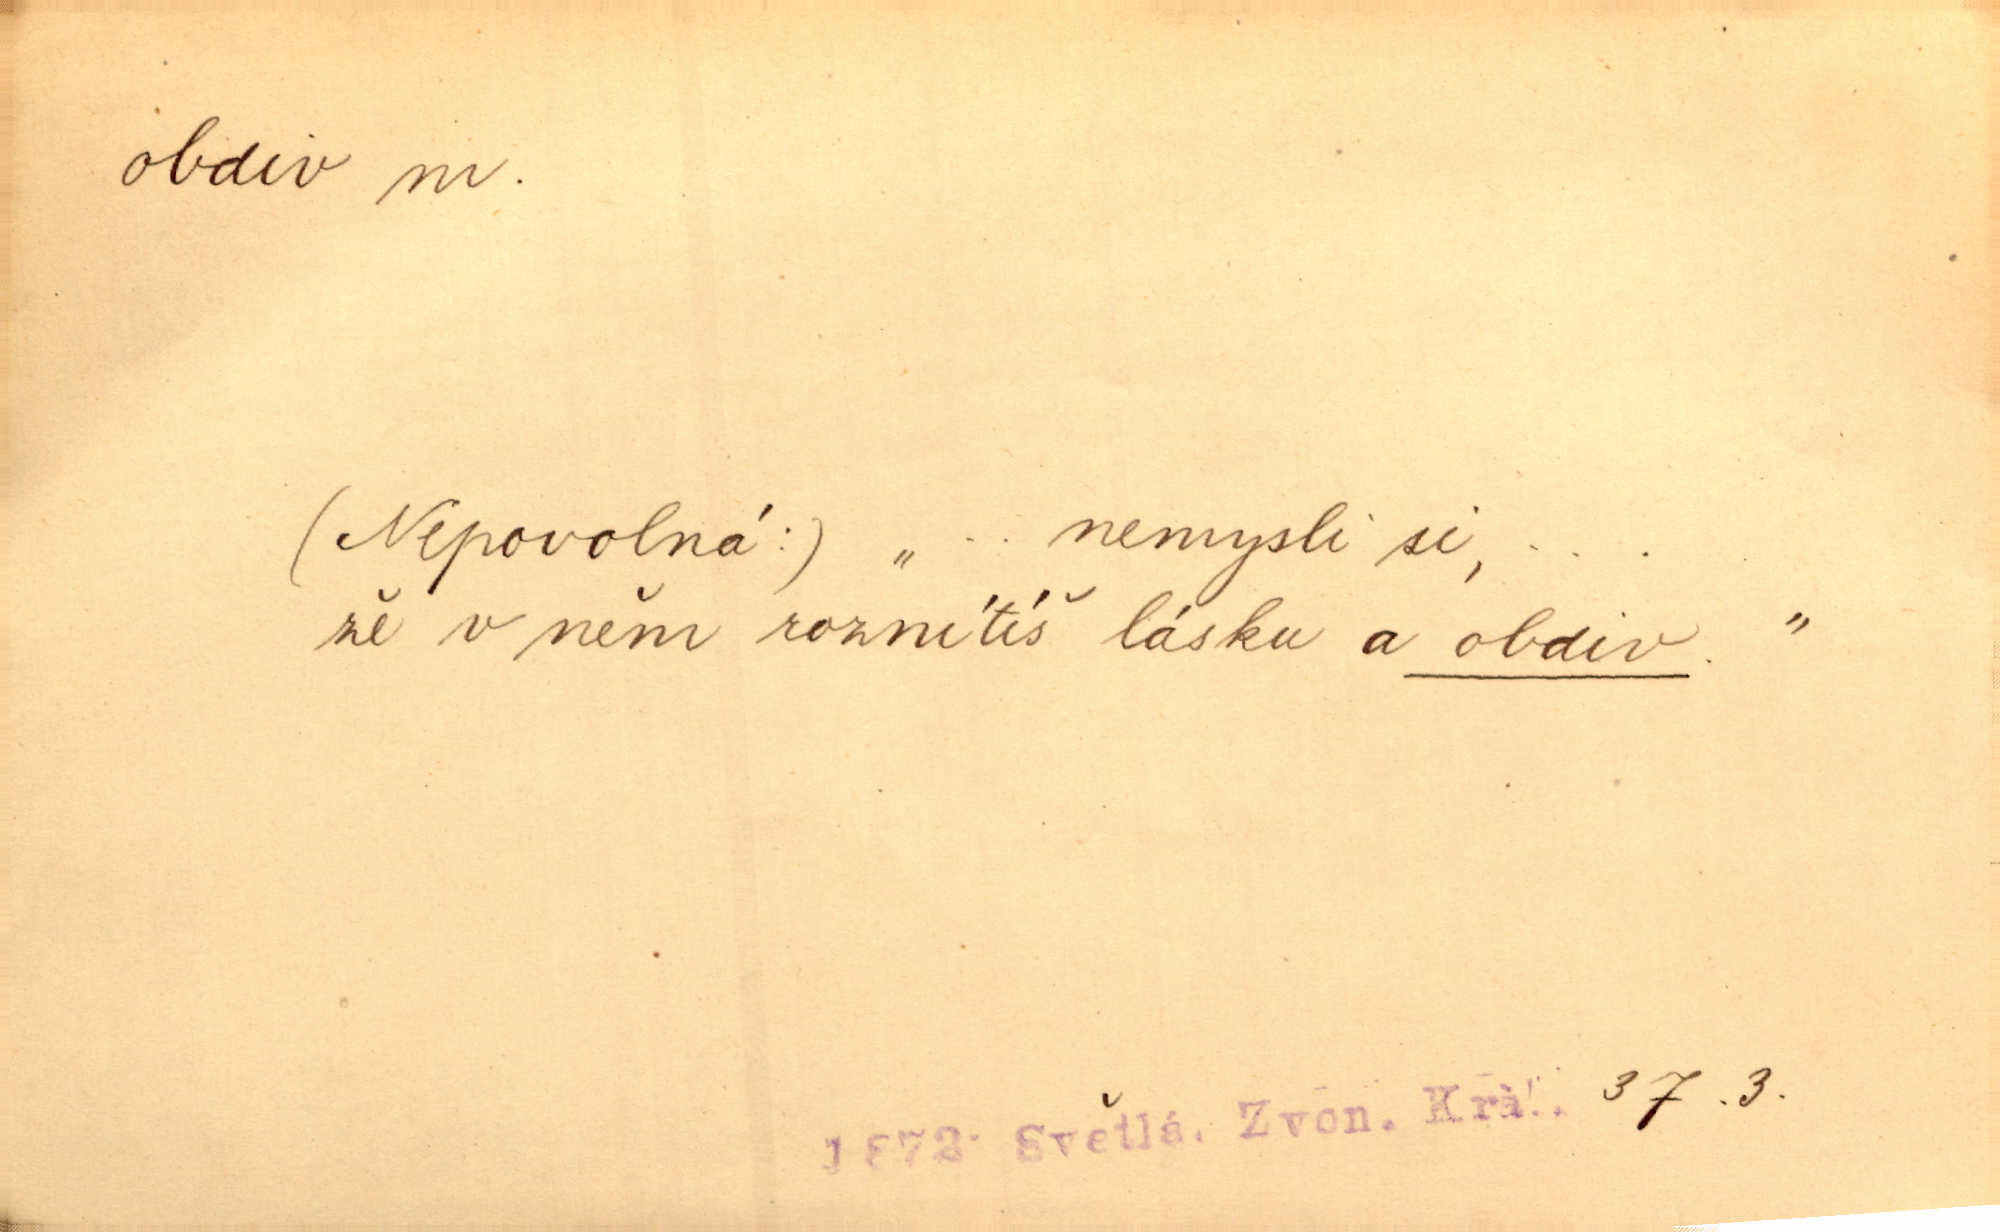 obdiv m.
(Nepovolná:) „ . . nemysli si, . . .
že v něm roznítíš lásku a obdiv. "
1872. Světlá. Zvon. Král. 37.3.